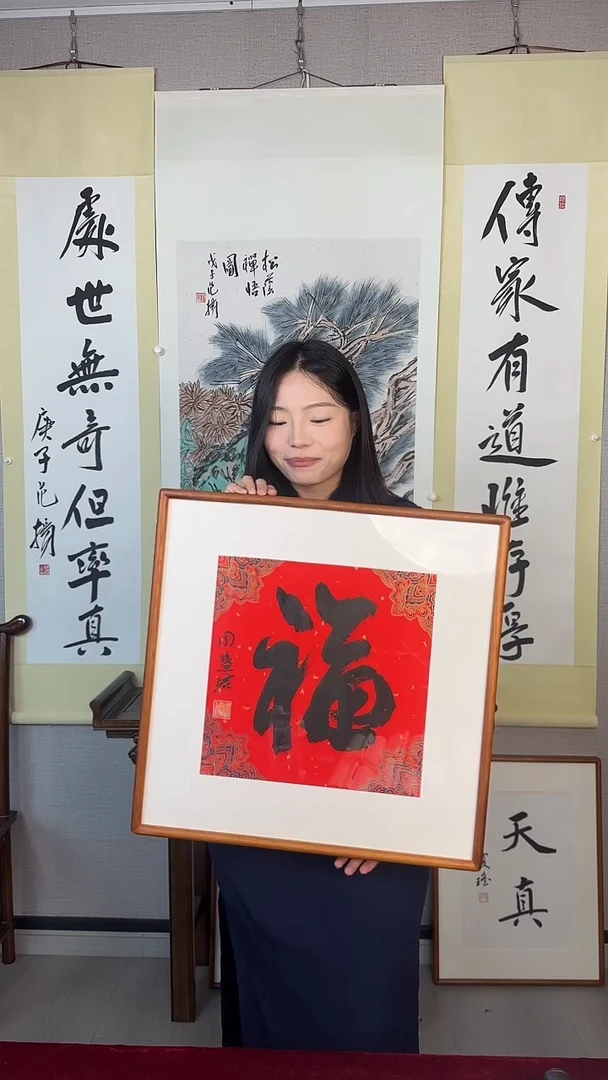 傳家有道唯存厚
處世無奇但率真
庚子范擕
松蔭
禪悟
圖
戊子范擕
福
天真